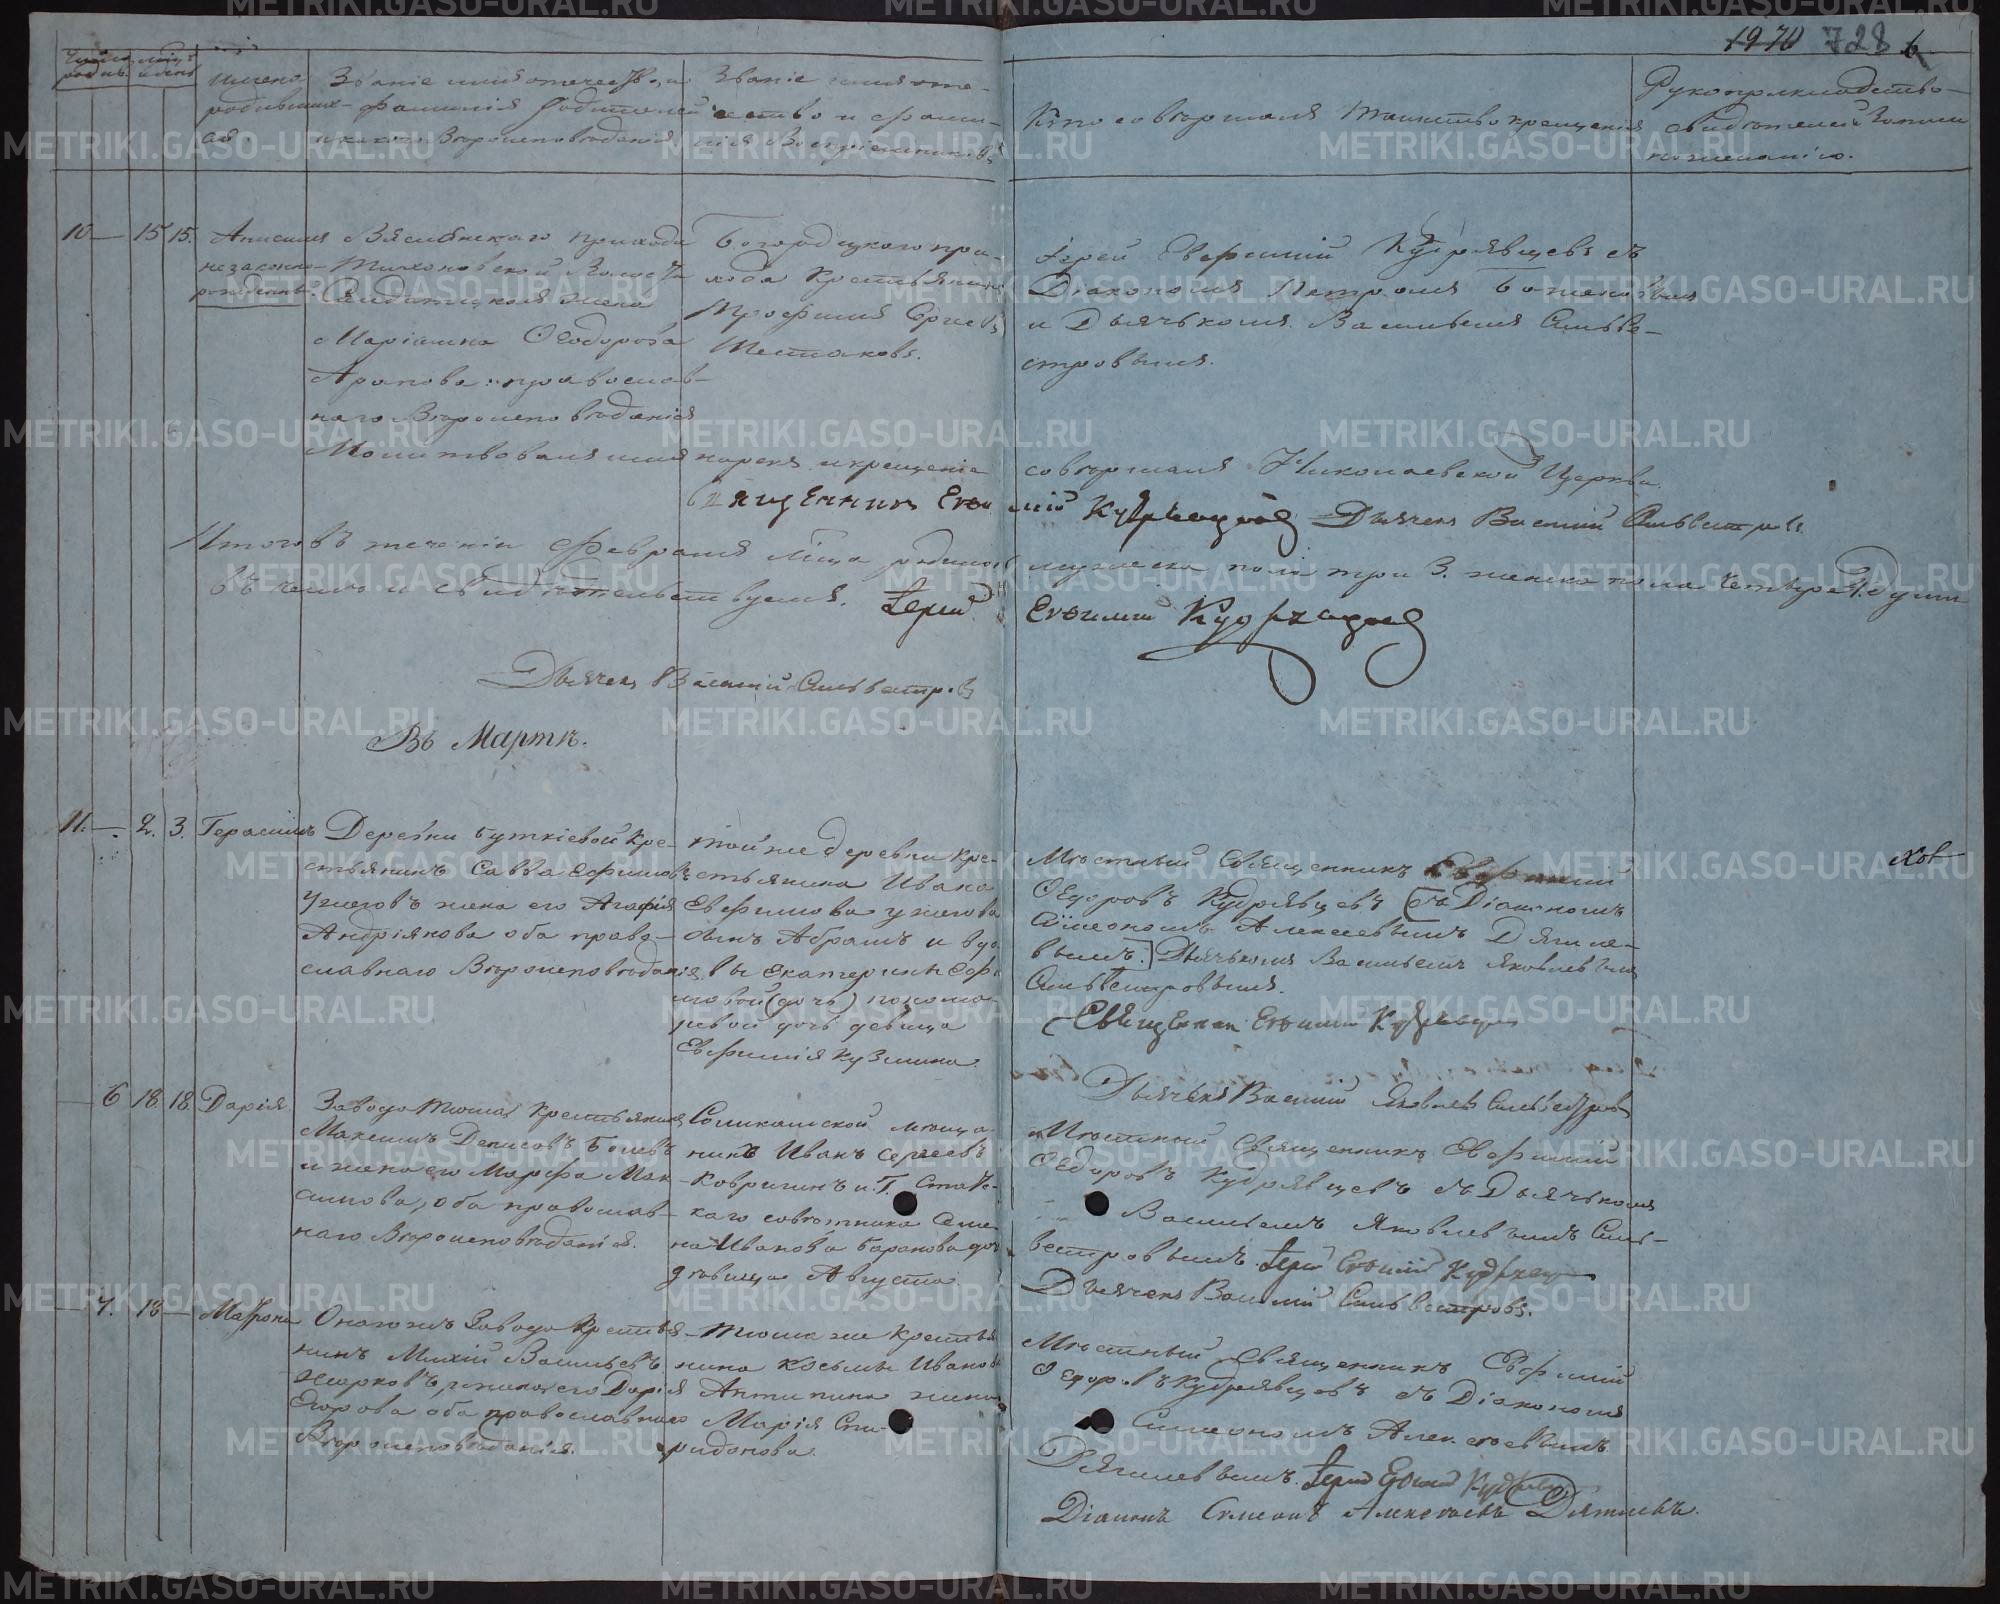 1970 728 6
Счетъ родив.
Мѣсяцъ и день
Имена родившихся.
Званіе имя отечество, и фамилія родителей и какого Вѣроисповѣданія
Званіе имя отечество и фамилія Воспріемниковъ
Кто совершалъ таинство крещенія
Рукоприкладство свидѣтелей Записи по желанію.
10 — 15 15.
Анисимъ
незаконно-
рожденный.
прихода
Тихоновской Волости
Солдатская жена
Маріамна Ѳеодорова
Арапова: православ-
наго Вѣроисповѣданія
Богородицкого при-
хода Крестьянинъ
Трофимъ Сергѣевъ
Шестаковъ.
Іерей Евфимій Кудрявцевъ съ
Діакономъ Петромъ
и Дьячькомъ Васильемъ Сильве-
стровымъ.
Молитвовалъ имя нарекъ и крещеніе совершалъ Николаевской Церкви
Священникъ Евѳимій Кудрявцевъ Дьячекъ Василій Сильвестровъ.
Итого въ теченіи Февраля мѣсяца родилось мужеска пола три 3. женска пола четыре
въ чемъ и свидѣтельствуемъ. Іерей Евѳимій Кудрявцевъ
Дьячекъ Василій Сильвестровъ
Въ Мартѣ.
11. — 2. 3. Герасимъ
Деревни Буткіевой Кре-
стьянинъ Савва Ефимовъ
Ужеговъ жена его Агафія
Андріянова оба право-
славнаго Вѣроисповѣданія
той же деревни кре-
стьянина Ивана
Евфимова Ужегова
сынъ Абрамъ и вдо-
вы Екатерины Ефи-
мовой (дочь) понома-
ревой дочь девица
Евфимія Кузмина.
Мѣстный Священникъ Евфимій
Ѳедоровъ Кудрявцевъ (съ Діакономъ
Симеономъ Алексеевымъ Дягиле-
вымъ.) Дьячькомъ Васильемъ Яковлевымъ
Сильвестровымъ.
Священникъ Евѳимій Кудрявцевъ
Дьячекъ Василій Яковлевъ Сильвестровъ
6 18. 18. Дарія
Завода Тюша Крестьянинъ
Максимъ Денисовъ Боневъ
и жена его Марфа Мак-
симова, оба православ-
наго Вѣроисповѣданія.
Соликамской мѣща-
нинъ Иванъ Сергеевъ
Ковригинъ и Г. Статс-
каго совѣтника Семе-
на Иванова Баранова дочь
дѣвица Августа.
Мѣстный Священникъ Евфимій
Ѳедоровъ Кудрявцевъ съ Дьячькомъ
Васильемъ Яковлевымъ Силь-
вестровымъ. Іерей Евѳимій Кудрявцевъ
Дьячекъ Василій Сильвестровъ.
7. 18 — Матрона
Онагожъ Завода Крестья-
нинъ Михій Васильевъ
Жарковъ, жена его Дарія
Егорова оба православнаго
Вѣроисповѣданія.
Тюша же Крестья-
нина Косьмы Иванова
Антипина жена
Марія Спи-
ридонова.
Мѣстный Священникъ Евфимій
Ѳедоровъ Кудрявцевъ съ Діакономъ
Симеономъ Алексеевымъ
Дягилевымъ. Іерей Евѳимій Кудрявцевъ
Діаконъ Симеонъ Алексеевъ Дягилевъ.